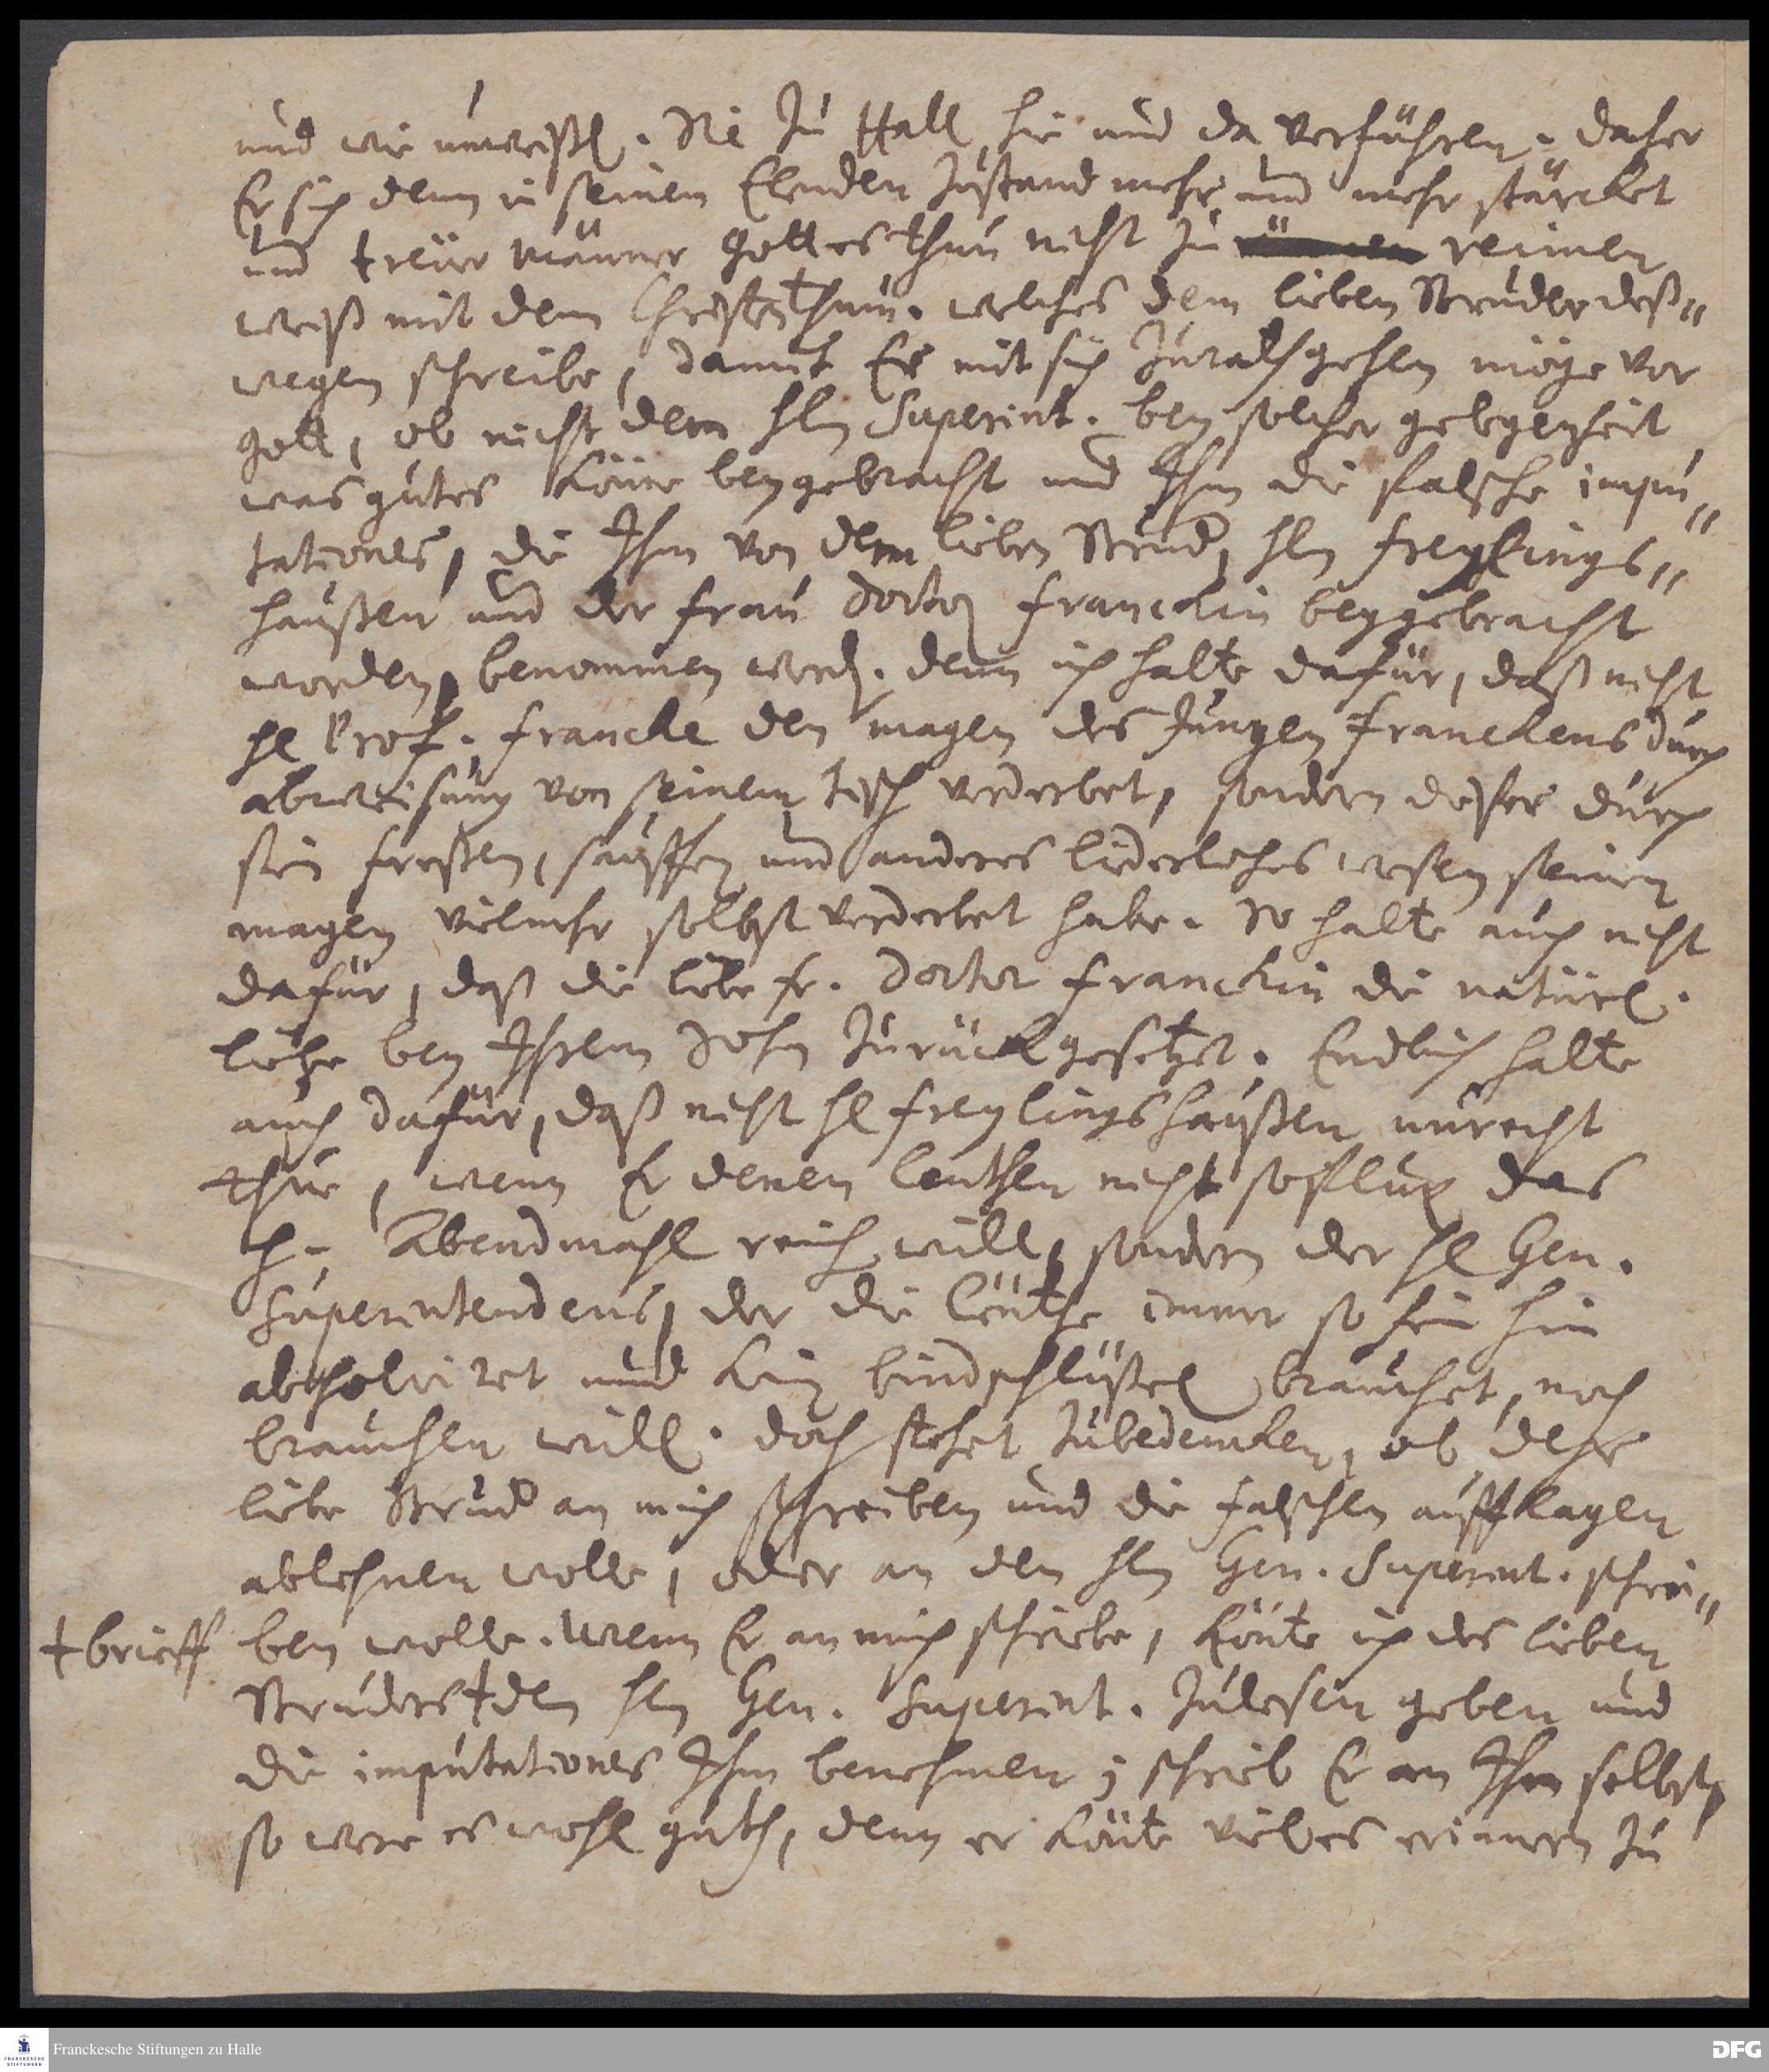 und wie unweißl. Sie zu Hall hie und da verführen. daher
Er sich denn in seinen Elenden Zustand mehr und mehr stärcket
und treuer männer Gottes thun nicht zu reimen
weiß mit dem Christenthum. welches dem lieben Bruder deß"
wegen schreibe, damit Er mit sich zurathgehen möge vor
Gott, ob nicht dem Hln Superint. bey solcher gelegenheit
was gutes könne beygebracht und Ihm die falsche impu"
tationes, die Ihm von dem lieben Brud, Hln Freylings"
haußen und der Frau Doctor Franckin beygebracht
worden, benommen werd. denn ich halte dafür, daß nicht
Hl Prof. Francke den magen des Jungen Franckens durch
abweisung von seinem tisch verderbet, sondern dieser durch
sein freßen, sauffen und anderes liderliches wesen seinen
magen vielmehr selbst verderbet habe. So halte auch nicht
dafür, daß die liebe Fr. Doctor Franckin die natürl.
liebe bey Ihrem Sohn zurückgesetzet. Endlich halte
auch dafür, daß nicht Hl Freylingshaußen unrecht
thue, wenn Er denen leuthen nicht so flux das
H. Abendmahl reich will, sondern der Hl Gen.
Superintendens, der die leuthe immer so hin
absolviret und kein bindschlüßel brauchet, noch
brauchen will. doch stehet zubedencken, ob der
liebe Brud an mich schreiben und die falschen aufflagen
ablehnen wolle, oder an den Hln Gen. Superint. schrei"
ben wolle. Wenn Er an mich schriebe, könte ich des lieben
+brieff
Bruders + den Hln Gen. Superint. zulesen geben und
die imputationes Ihm benehmen; schrieb Er an Ihm selbst,
so were es wohl guth, denn er könte vieles erinnern zu
Franckesche Stiftungen zu Halle
FRANCKESCHE STIFTUNGEN
DFG